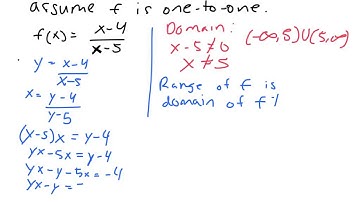 assume f is one-to-one.
f(x) = x-4 / x-5
y = x-4 / x-5
x = y-4 / y-5
(y-5)x = y-4
yx-5x = y-4
yx-y-5x = -4
yx-y =
Domain:
x-5≠0
x≠5
(-∞,5)∪(5,∞)
Range of f is
domain of f⁻¹